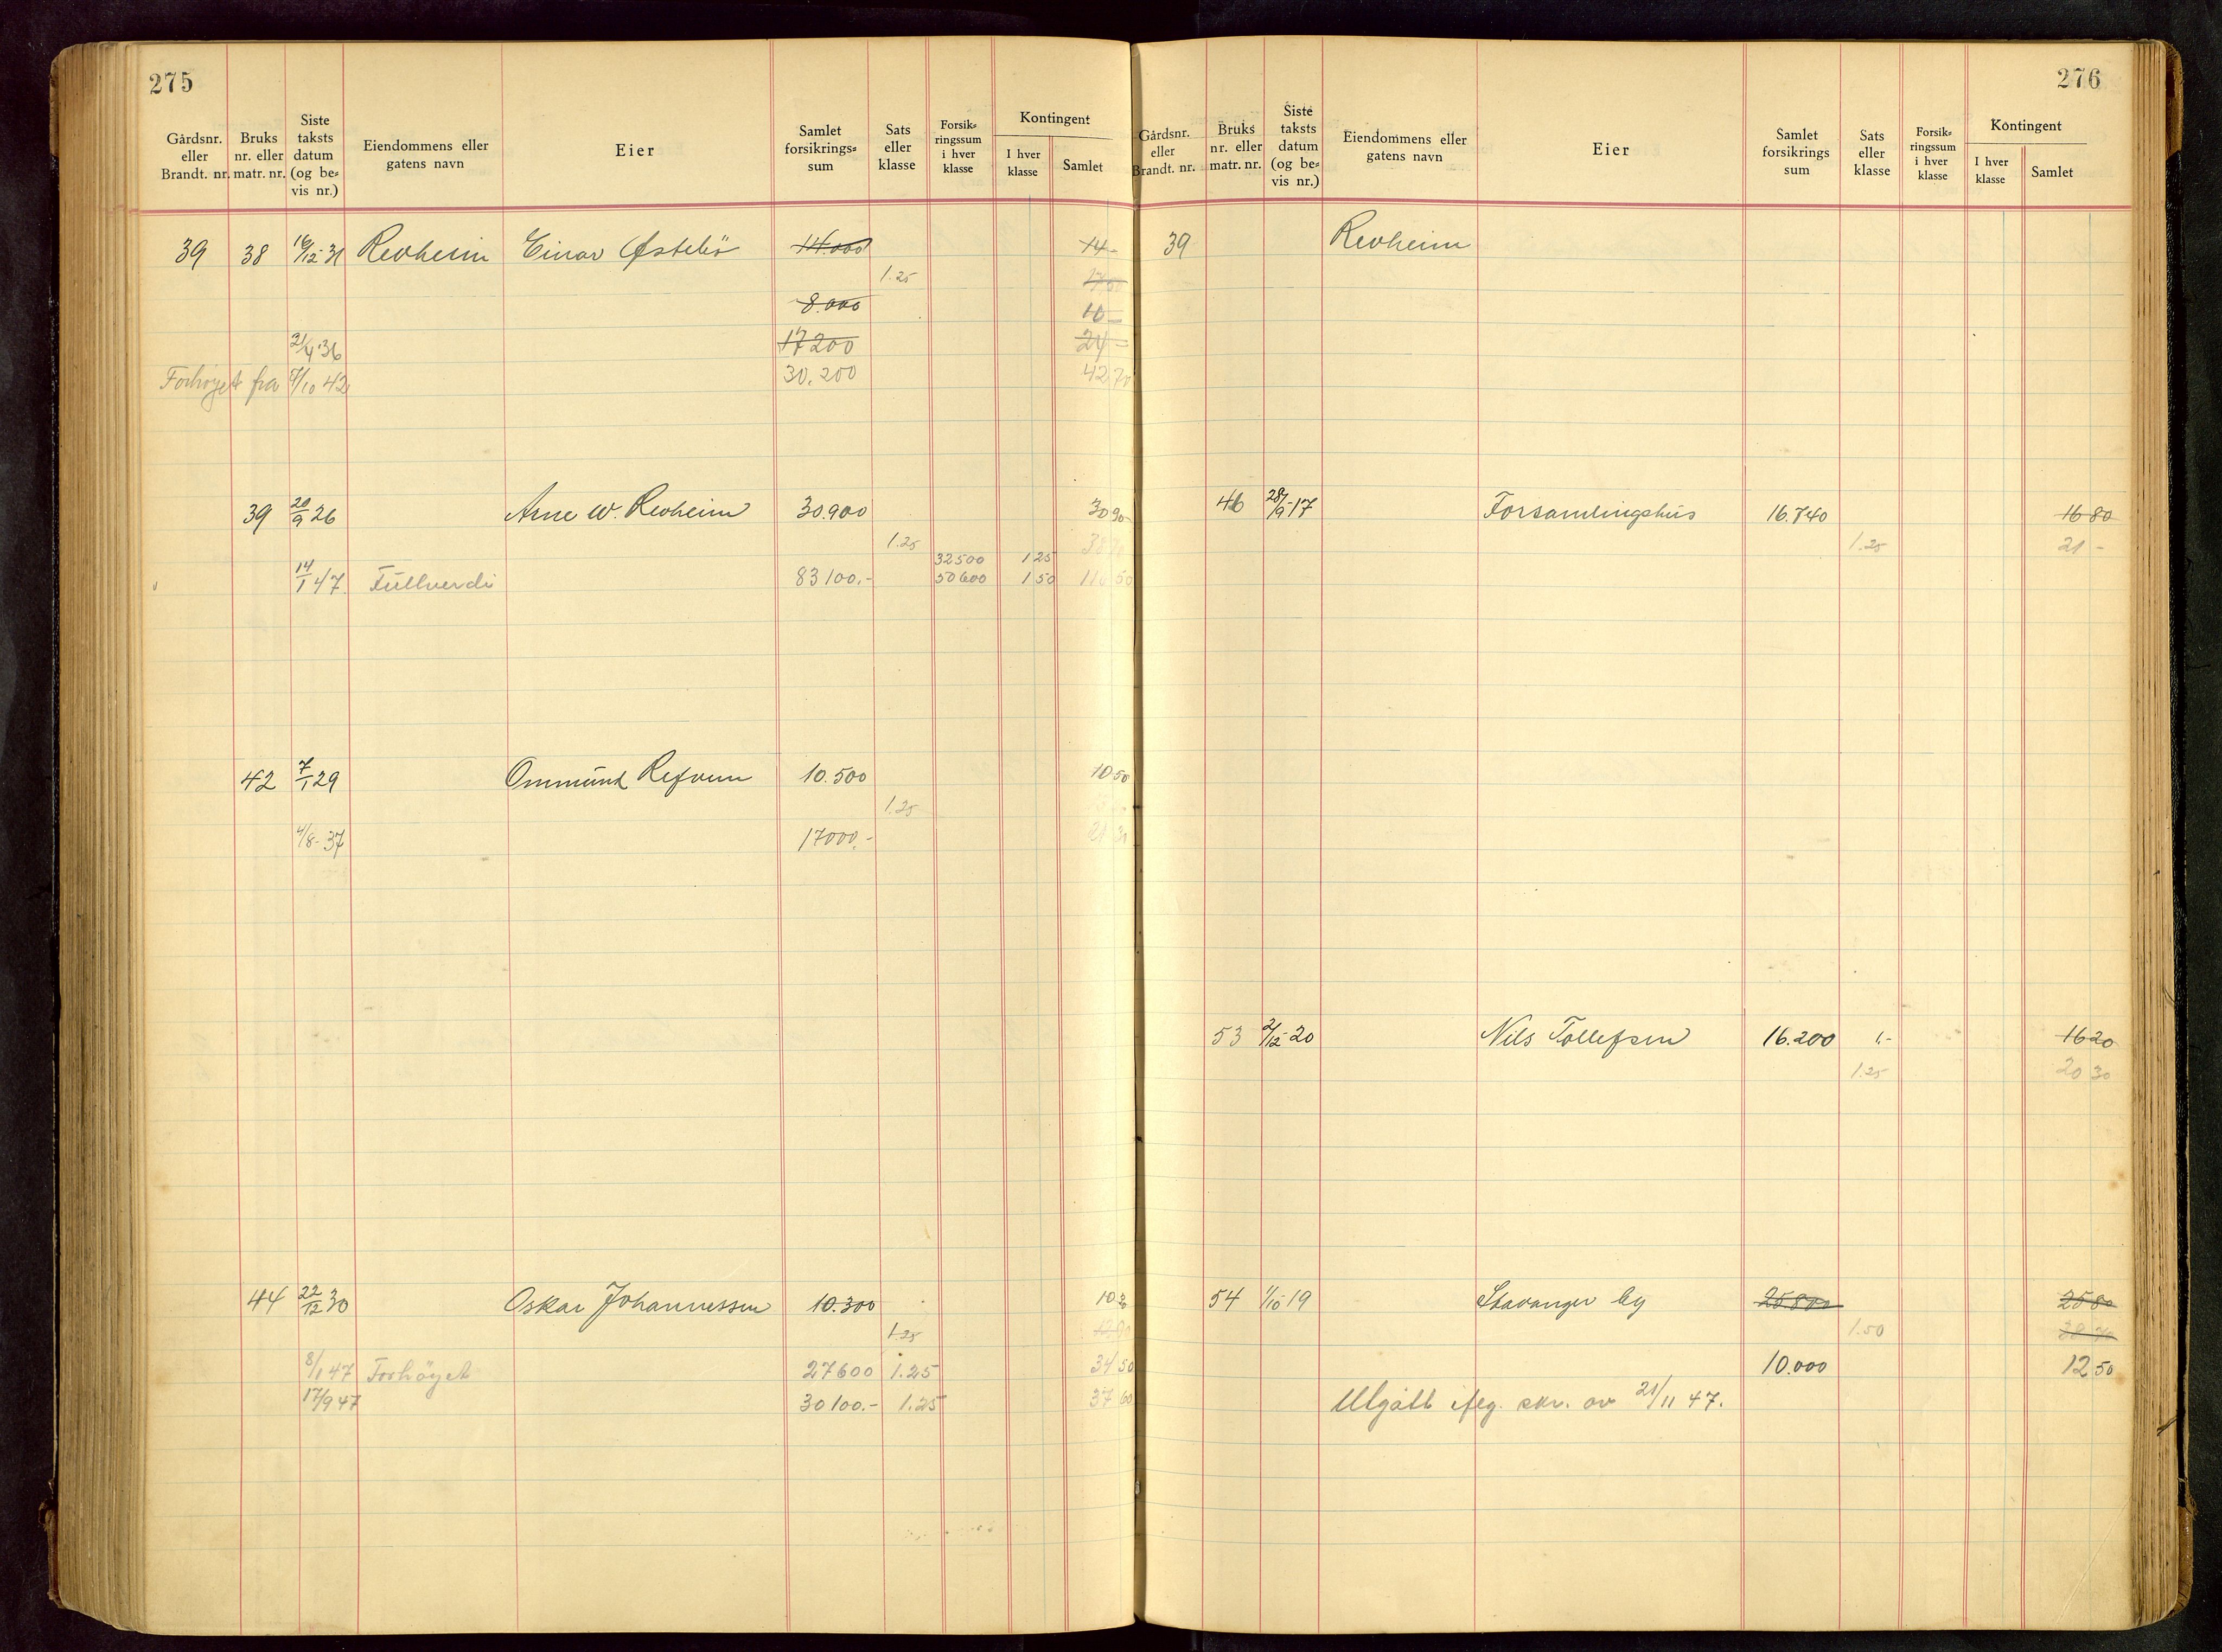 275
Gårdsnr. eller Brandt. nr. Bruks nr. eller matr. nr. Siste taksts datum (og be= vis nr.) Eiendommens eller gatens navn Eier Samlet forsikrings= sum Sats eller klasse Forsik= ringssum i hver klasse Kontingent I hver klasse Samlet
39 38 16/12-31 Revheim Einar Østebö 14.000 14-
1.25
8.000 10-
21/4-36 17200 24-
Forhøyet fra 7/10 42 30.200 42 70
39 20/9 26 Arne W. Revheim 30.900 30 90
1.25
32500 1 25
14/1 47. Fullverdi 83100.- 50600 1 50 116 50
42 7/1 29 Ommund 10.500 10 50
1.25
4/8-37 17000.-
44 22/12 30 Oskar Johannessen 10.300 10 30
1.25
8/1 47 Forhöyet 27600 1.25 34 50
17/9 47 30100.- 1.25 37 60
276
Gårdsnr. eller Brandt. nr. Bruks nr. eller matr. nr. Siste taksts datum (og be= vis nr.) Eiendommens eller gatens navn Eier Samlet forsikrings sum Sats eller klasse Forsik= ringssum i hver klasse Kontingent I hver klasse Samlet
39 Revheim
46 28/9-17 Forsamlingshus 16.740 16 80
1.25 21 -
53 2/12-20 Nils Tollefsen 16.200 1.- 16 20
1.25 20 30
54 1/10 19 Stavanger by 25800 25 80
1.50 38 70
10.000 12 50
Utgått ifлg. skr. av 21/11 47.